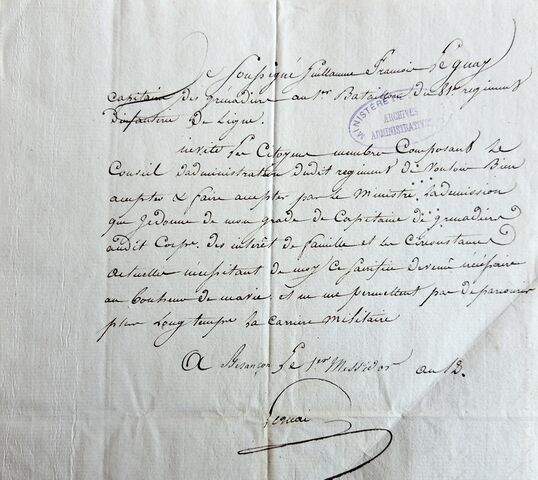 Je Soussigné Guillaume Francois Le Quay
capitaine des grénadiers au 1er Bataillon du 81e regiment
d'infanterie de Ligne.
MINISTÈRE
ARCHIVES
ADMINISTRATIVES
invite les Citoyens membres Composant Le
Conseil d'administration dudit regiment de Vouloir Bien
accepter & faire accepter par le Ministre, la demission
que Je donne de mon grade de Capitaine de grenadiers
audit Corps, des interêt de famille et les Circonstances
actuelles necessitant de moy Ce Sacrifice devenu nécessaire
au bonheur de ma vie et ne me permettent pas de parcourir
plus Long temps la carriere Militaire
A Besançon Le 1er Messidor an 12.